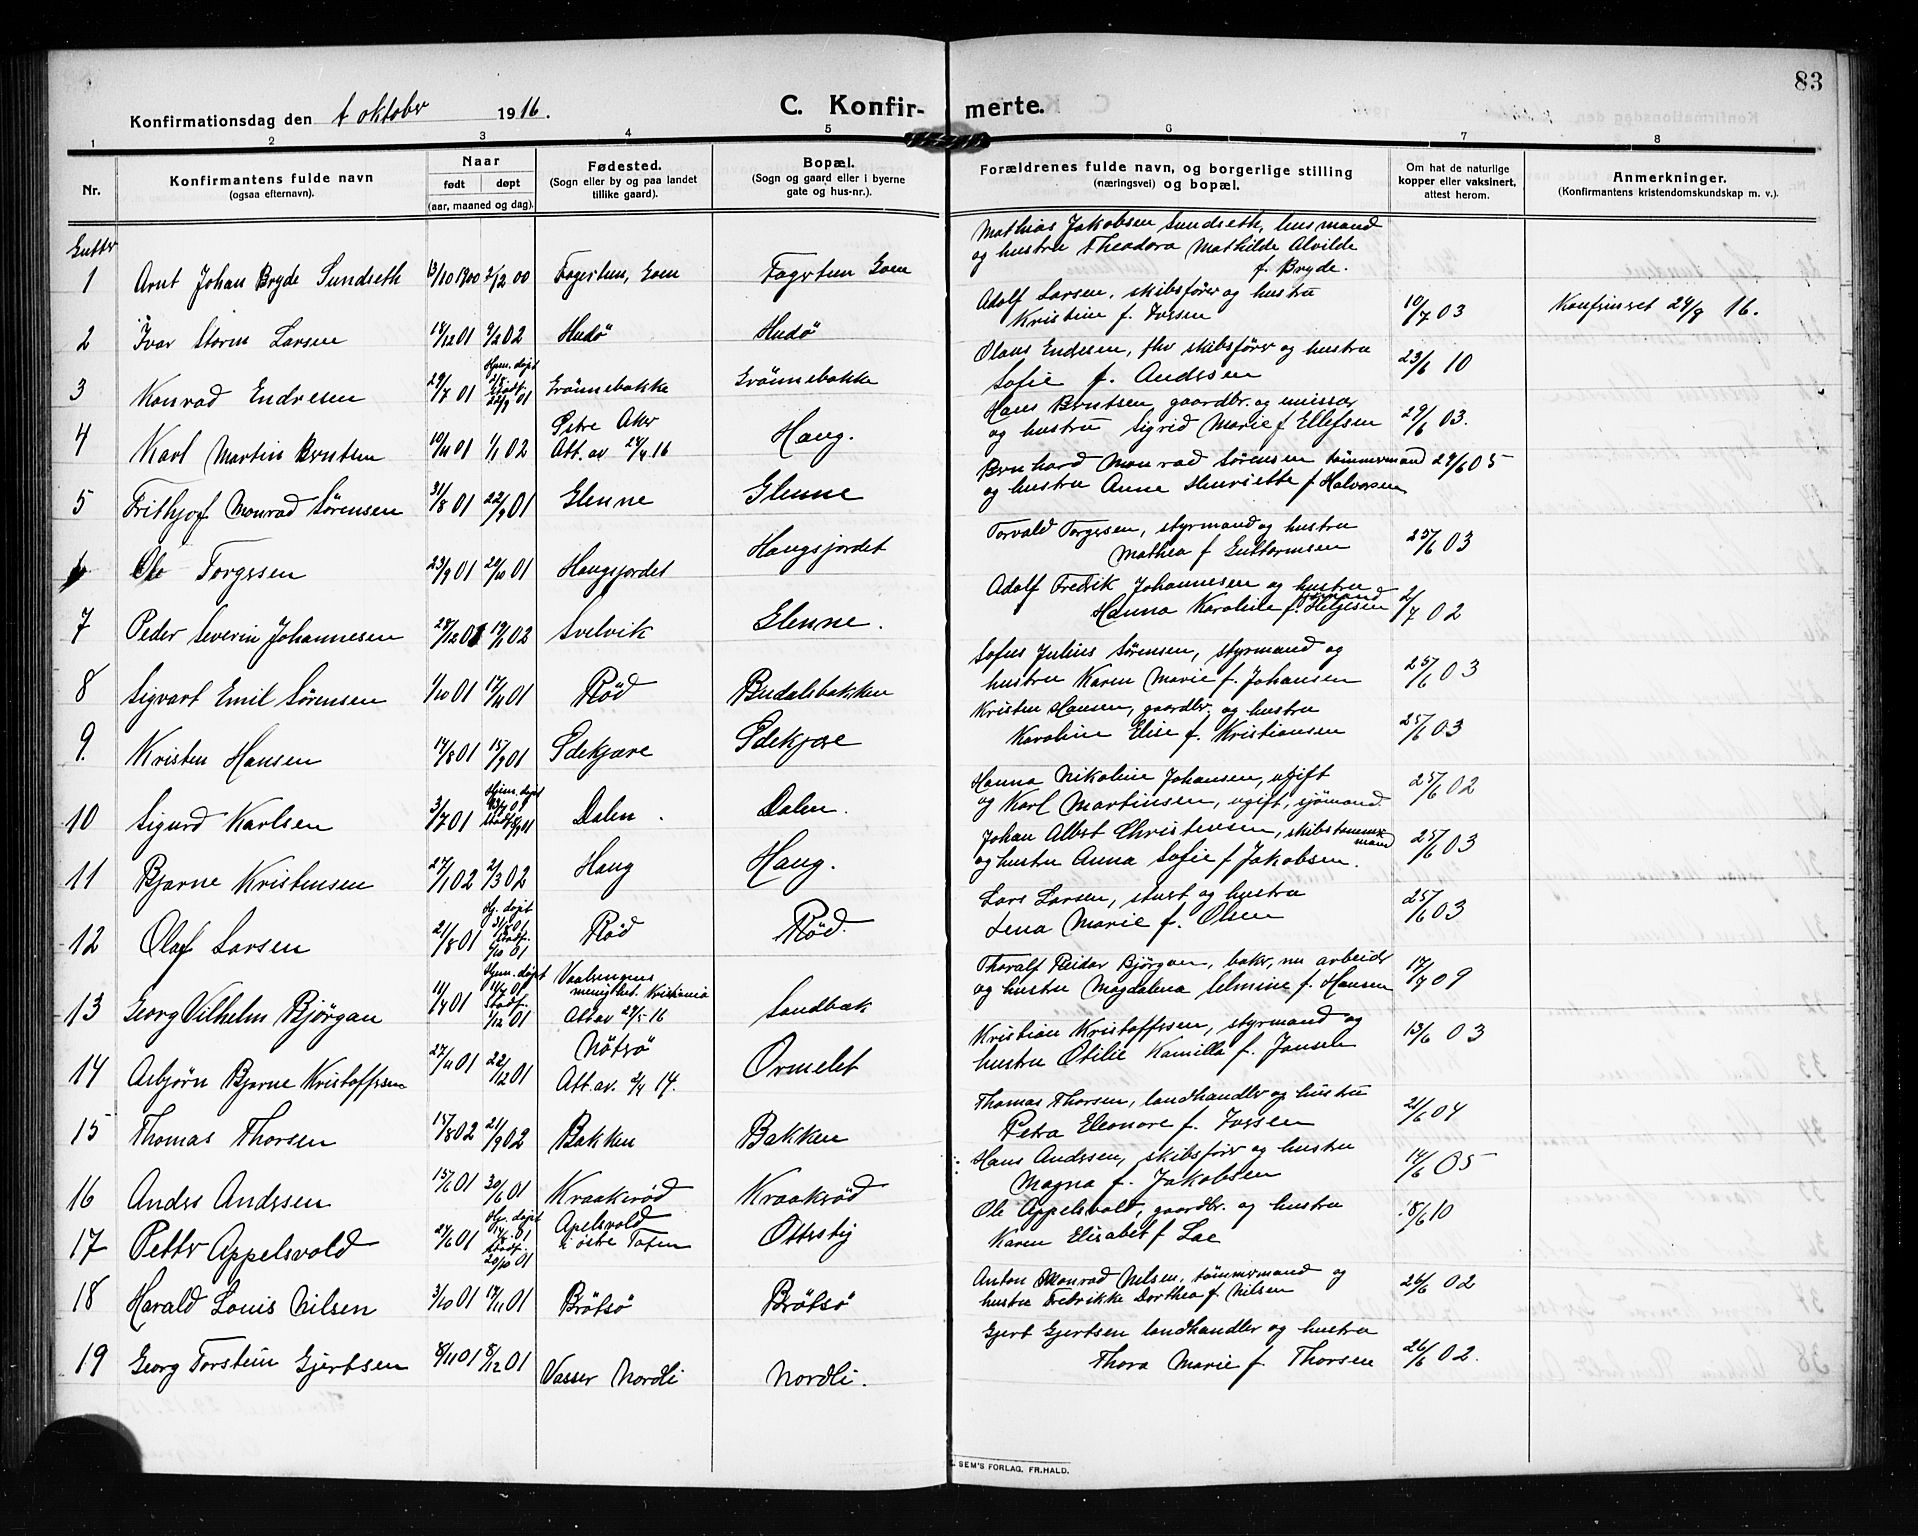 83
Konfirmationsdag den 1 oktober 1916.
C. Konfir- merte.
1 2 3 4 5 6 7 8
Nr.
Konfirmantens fulde navn
(ogsaa efternavn).
Naar
født døpt
(aar, maaned og dag).
Fødested.
(Sogn eller by og paa landet
tillike gaard).
Bopæl.
(Sogn og gaard eller i byerne
gate og hus-nr.).
Forældrenes fulde navn, og borgerlige stilling
(næringsvei) og bopæl.
Om hat de naturlige
kopper eller vaksinert,
attest herom.
Anmerkninger.
(Konfirmantens kristendomskundskap m. v.).
Gutter
Mathias Jakobsen Sundseth, husmand
og hustru Theodora Mathilde Alvilde
f. Bryde.
1 Arnt Johan Bryde Sundseth 13/10 1900 2/12 00 Fagertun, Goen Fagertun Goen
Adolf Larsen, skibsfører og hustru
Kristine f. Iversen 10/7 03 Konfirmeret 24/9 16.
2 Ivar Storm Larsen 18/12 01 9/2 02 Hudø Hudø
Olaus Endresen, fhv skibsfører og hustru
Sofie f. Andersen 23/6 10
3 Konrad Endresen 29/7 01 Hjem. døpt 2/8 Stadf. 22/9 01 Grönnebakke Grönnebakke
Hans Berntsen, gaardbr. og emissær
og hustru Sigrid Marie f Ellefsen 29/6 03.
4 Karl Martin Berntsen 10/11 01 1/1 02 Petre Aker Haug.
Att. av 28/4 16
Bernhard Monrad Sørensen tømmermand 29/6 05
og hustru Anne Henriette f Halvorsen
5 Frithjof Monrad Sørensen 31/8 01 22/9 01 Glenne Glenne
Torvald Torgersen, styrmand og hustru
Mathea f Guttormsen 25/6 03
6 Ole Torgersen 23/9 01 20/10 01 Haugsjordet Haugsjordet
Adolf Fredrik Johannesen og hustru
Hanna Karoline f. Helgesen 2/7 02
7 Peder Severin Johannesen 28/12 01 19/1 02 Svelvik Glenne.
Sofus Julius Sørensen, styrmand og
hustru Karen Marie f. Johansen 25/6 03
8 Sigvart Emil Sørensen 1/10 01 17/11 01 Röd Budalsbakken
Kristen Hansen, gaardbr. og hustru
Karoline Elise f. Kristiansen 25/6 03
9. Kristen Hansen 14/8 01 15/9 01 Sdekjære Sdekjære
Hanna Nikoline Johansen, ugift
og Karl Martinsen, ugift, sjømand. 25/6 02
10 Sigurd Karlsen 3/7 01 Hjem. døpt Dalen. Dalen.
Johan Albert Christensen, skibstømmermand
og hustru Anna Sofie f Jakobsen. 25/6 03
11 Bjarne Kristensen 27/1 02 2/3 02 Haug Haug.
Lars Larsen, stuert og hustru
Lena Marie f. Olsen 25/6 03
12 Olaf Larsen 21/8 01 Hj. døpt 31/8 01 Stadf. 6/10 01 Röd Röd.
Thoralf Reidar Bjørgan, baker, nu arbeider
og hustru Magdalena Selmine f. Hansen 17/7 09
13 Georg Vilhelm Bjørgan 14/7 01 Hjem. døpt 14/7 01 Stadf. 1/12 01 Vaalerengens menighet. Kristiania Sandbæk
Att av 29/5 16
Kristian Kristoffersen, styrmand og
hustru Otilie Kamilla f. Jansen 13/6 03
14 Asbjørn Bjarne Kristoffersen 27/11 01 22/12 01 Nötrö Ormelet
Att. av. 2/4 14.
Thomas Thorsen, landhandler og hustru
Petra Eleonore f. Iversen 21/6 04
15 Thomas Thorsen 15/8 02 21/9 02 Bakken Bakken
Hans Andersen, skibsfører og hustru
Magna f. Jakobsen 14/6 05
16 Anders Andersen 15/6 01 30/6 01 Kraakerød Kraakerød
Ole Appelsvold, gaardbr. og hustru
Karen Elisabet f Lae 18/6 10
17 Petter Appelsvold 27/6 01 Hj. døpt Stadf. 20/10 01 Apelsvold Ottersby
i östre Toten
Anton Monrad Nilsen, tømmermand og
hustru Fredrikke Dorthea f. Nilsen 26/6 02
18 Harald Louis Nilsen 3/10 01 17/11 01 Bröttsö Bröttsö
Gjert Gjertsen landhandler og hustru
Thora Marie f Thorsen 26/6 02.
19 Georg Torstein Gjertsen 8/11 01 8/12 01 Vasser Nordli Nordli.
SEM'S FORLAG, FR.HALD.